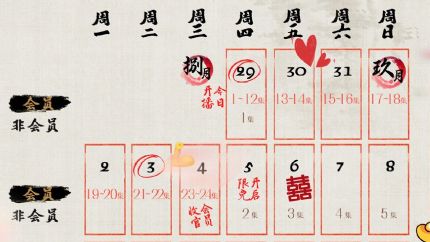 周一 周二 周三 周四 周五 周六 周日
捌月 29 30 31 玖月
今日开播
会员 1-12集 13-14集 15-16集 17-18集
非会员 1集
2 3 4 5 6 7 8
会员 19-20集 21-22集 23-24集 开启限免 囍
非会员 会员收官 2集 3集 4集 5集